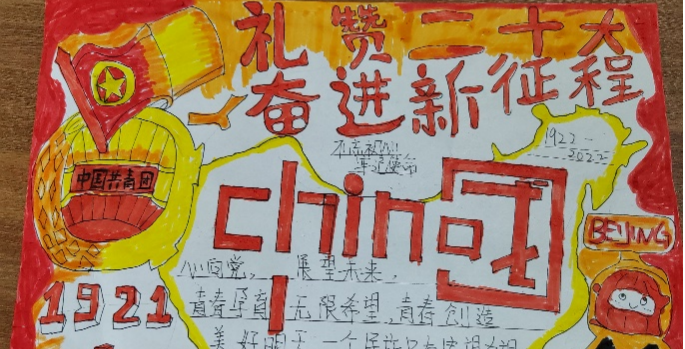 礼赞二十大
奋进新征程
不忘初心
牢记使命
1922-
2022
中国共青团
china
国
BEIJING
心向党，展望未来，
1921
青春孕育无限希望，青春创造
美好明天，一个民族只有